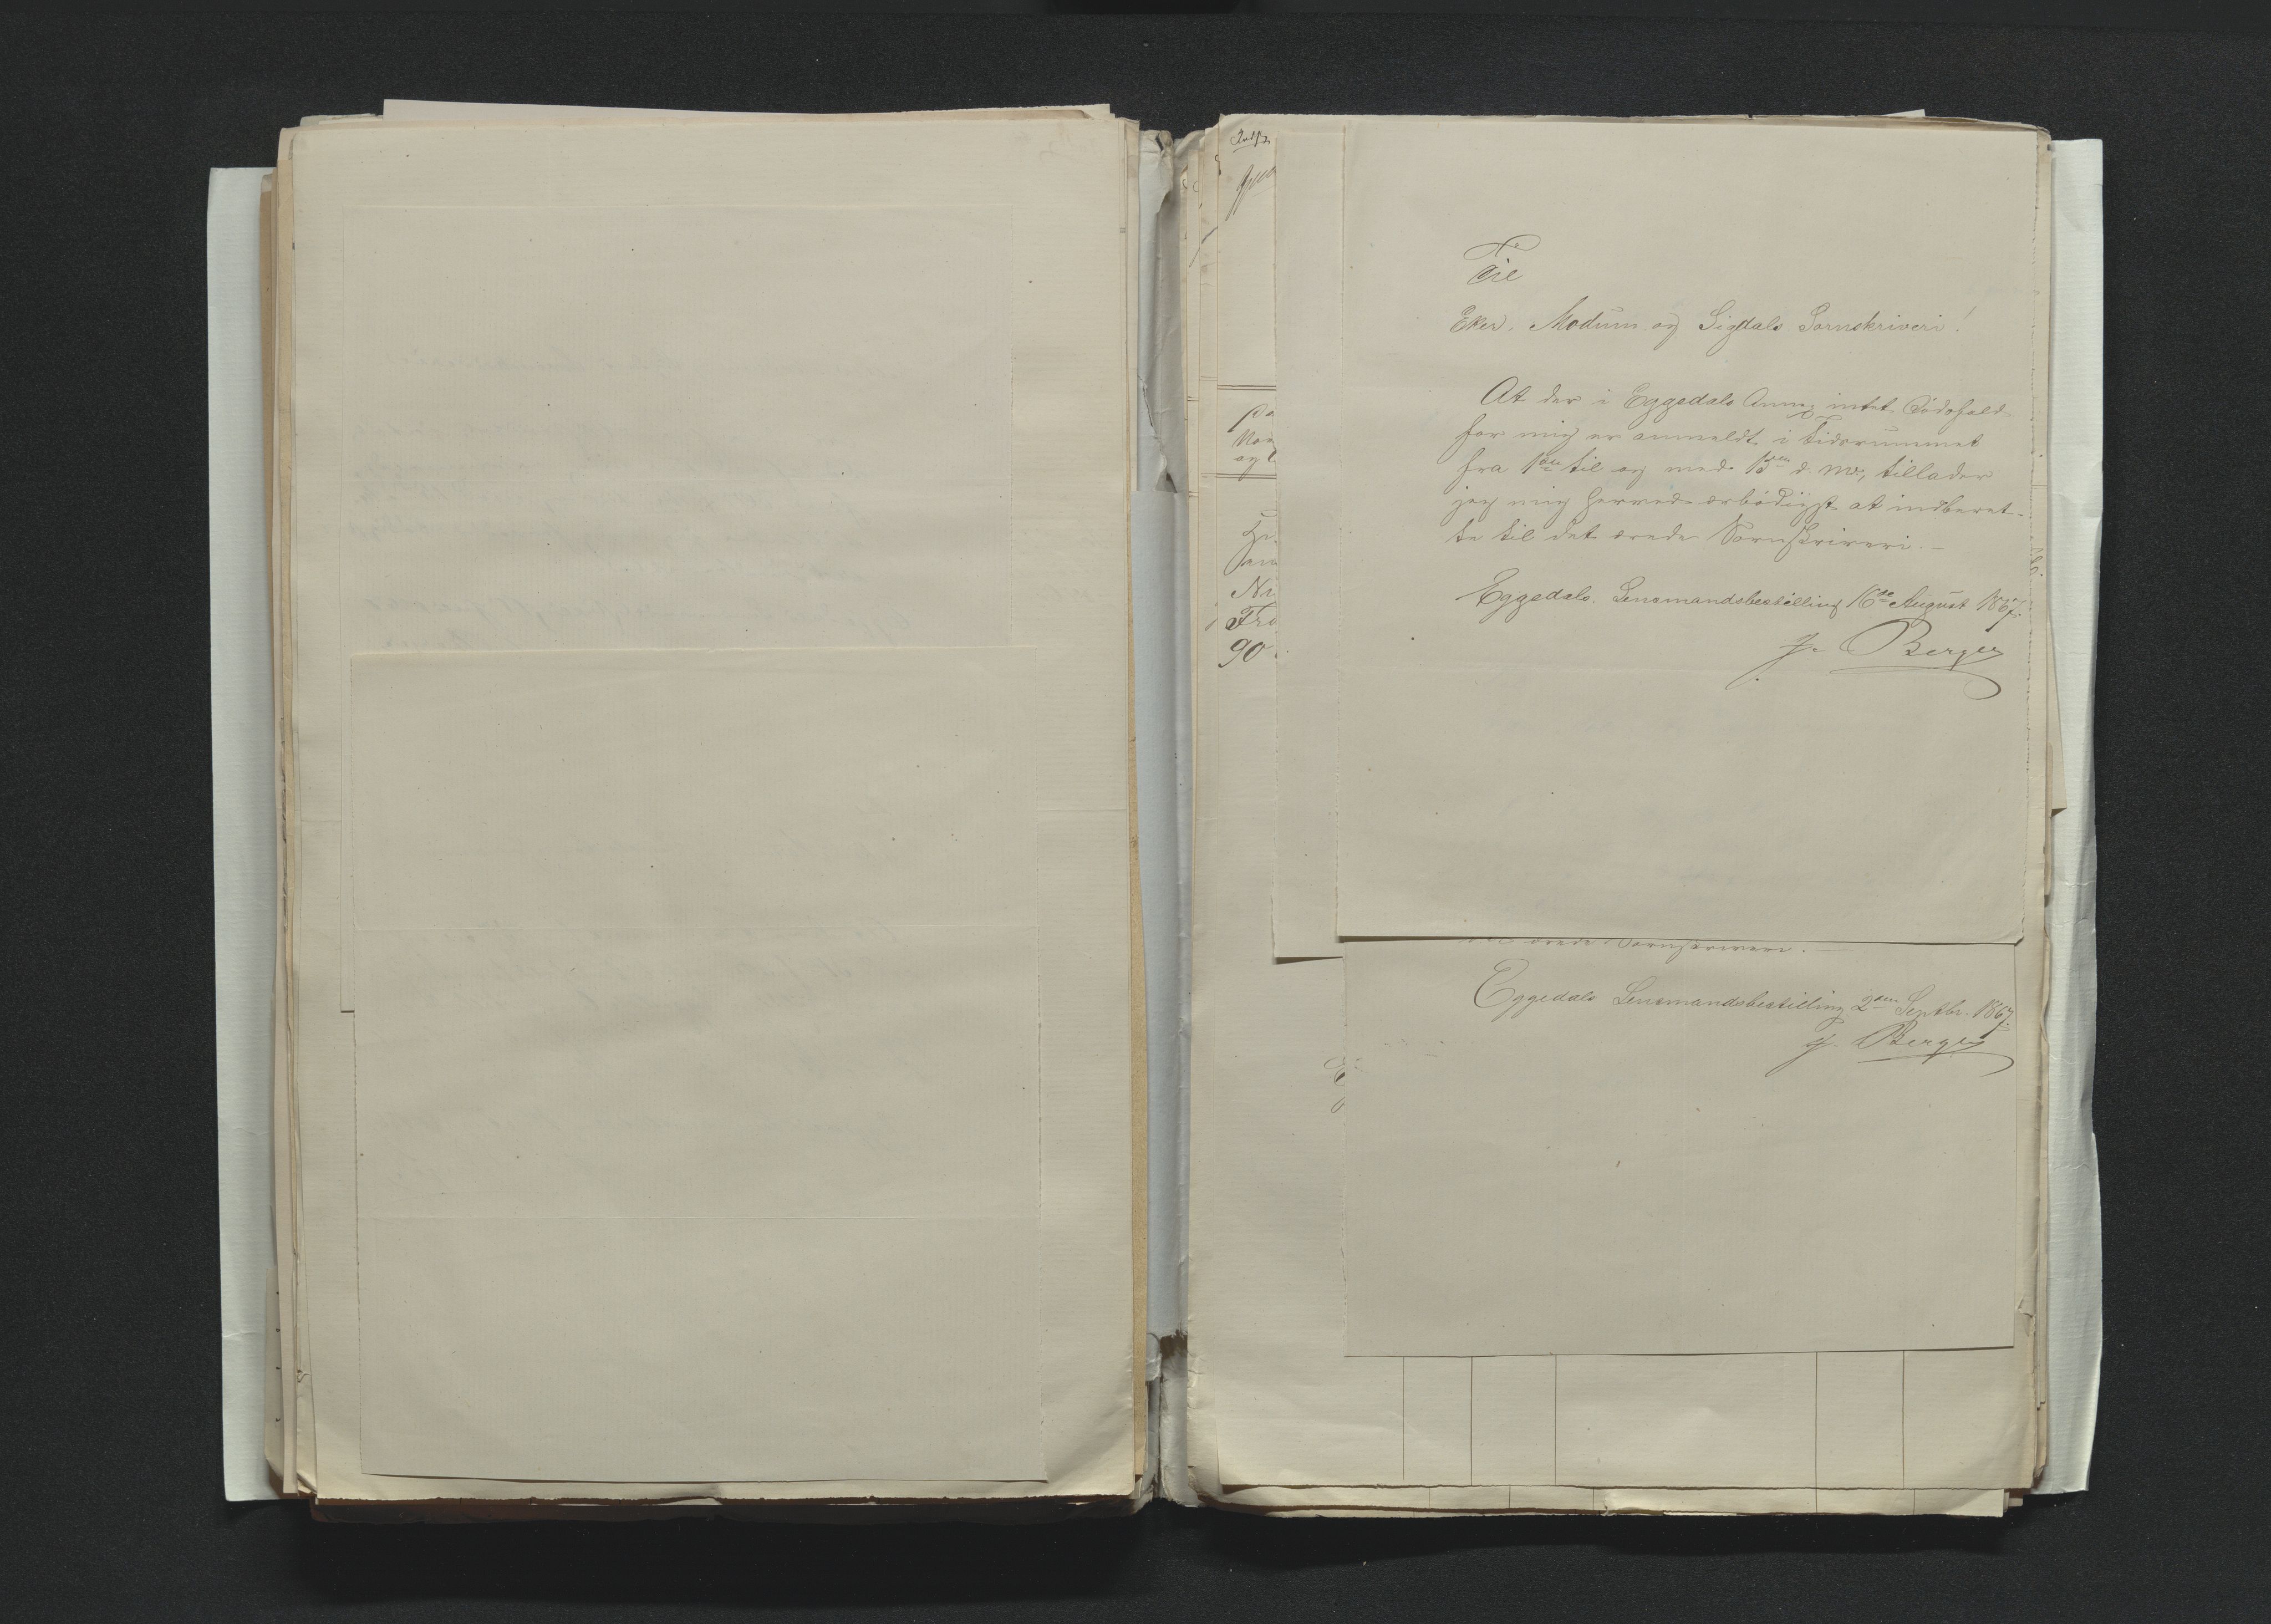 Til
Eker, Modum og Sigdals Sornskriveri!
At der i Eggedals Annex intet Dødsfald
for mig er anmeldt i Tidsrummet
fra 1ste til og med 15de d. M., tillader
jeg mig herved ærbødigst at indberet-
te til det ærede Sornskriveri. –
Eggedals Lensmandsbestilling 16de August 1867.
J. Berger
ærede Sornskriveri. –
Eggedals Lensmandsbestilling 2den Septbr. 1867.
J. Berger
90